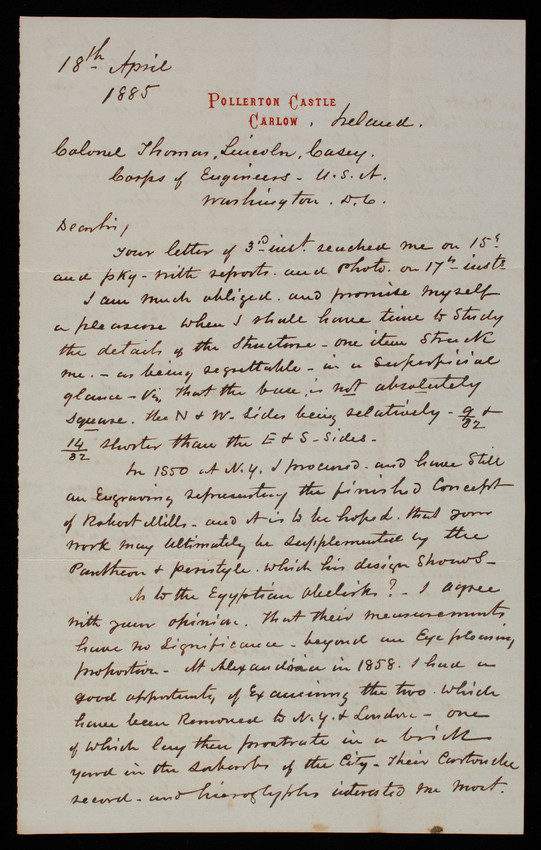 18th April
1885
POLLERTON CASTLE
CARLOW, Ireland.
Colonel Thomas, Lincoln, Casey.
Corps of Engineers - U.S.A.
Washington. D.C.
Dear Sir,
Your letter of 3rd inst. reached me on 15th
and pkg - with reports. and Photo. on 17th inst.
I am much obliged. and promise myself
a pleasure when I shall have time to Study
the details of the Structure - one item Struck
me. - as being regrettable - in a Superficial
glance - Viz, that the base, is not absolutely
Square. the N & W. Sides being relatively - 9/32 &
14/32 shorter than the E & S - Sides -
In 1850 at N.Y. I procured - and have Still
an Engraving representing the finished Concept
of Robert Mills - and it is to be hoped. that your
work may ultimately be supplemented by the
Pantheon & peristyle. which his design Shows -
As to the Egyptian Obelisks? - I agree
with your opinion. that their measurements
have no Significance - beyond an Eye pleasing
proportion - At Alexandria in 1858. I had a
good opportunity of Examining the two. which
have been Removed to N.Y. & London - one
of which lay then prostrate in a brick
yard in the Suburbs of the City - their Cartouche
record - and hieroglyphs interested me most.